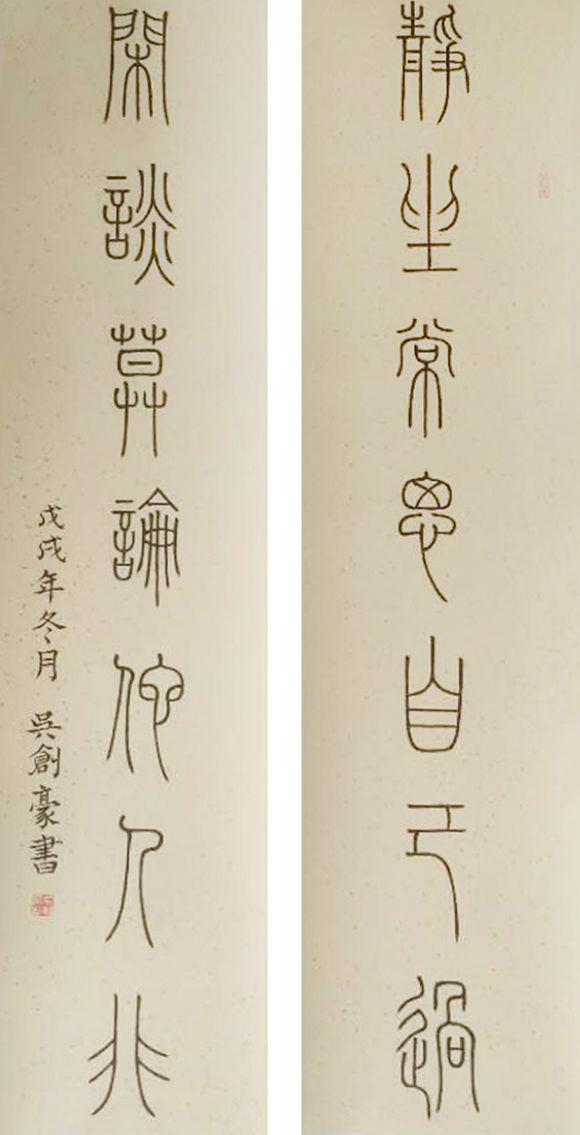 靜坐常思自己過
閑談莫論他人非
戊戌年冬月 吳創豪書